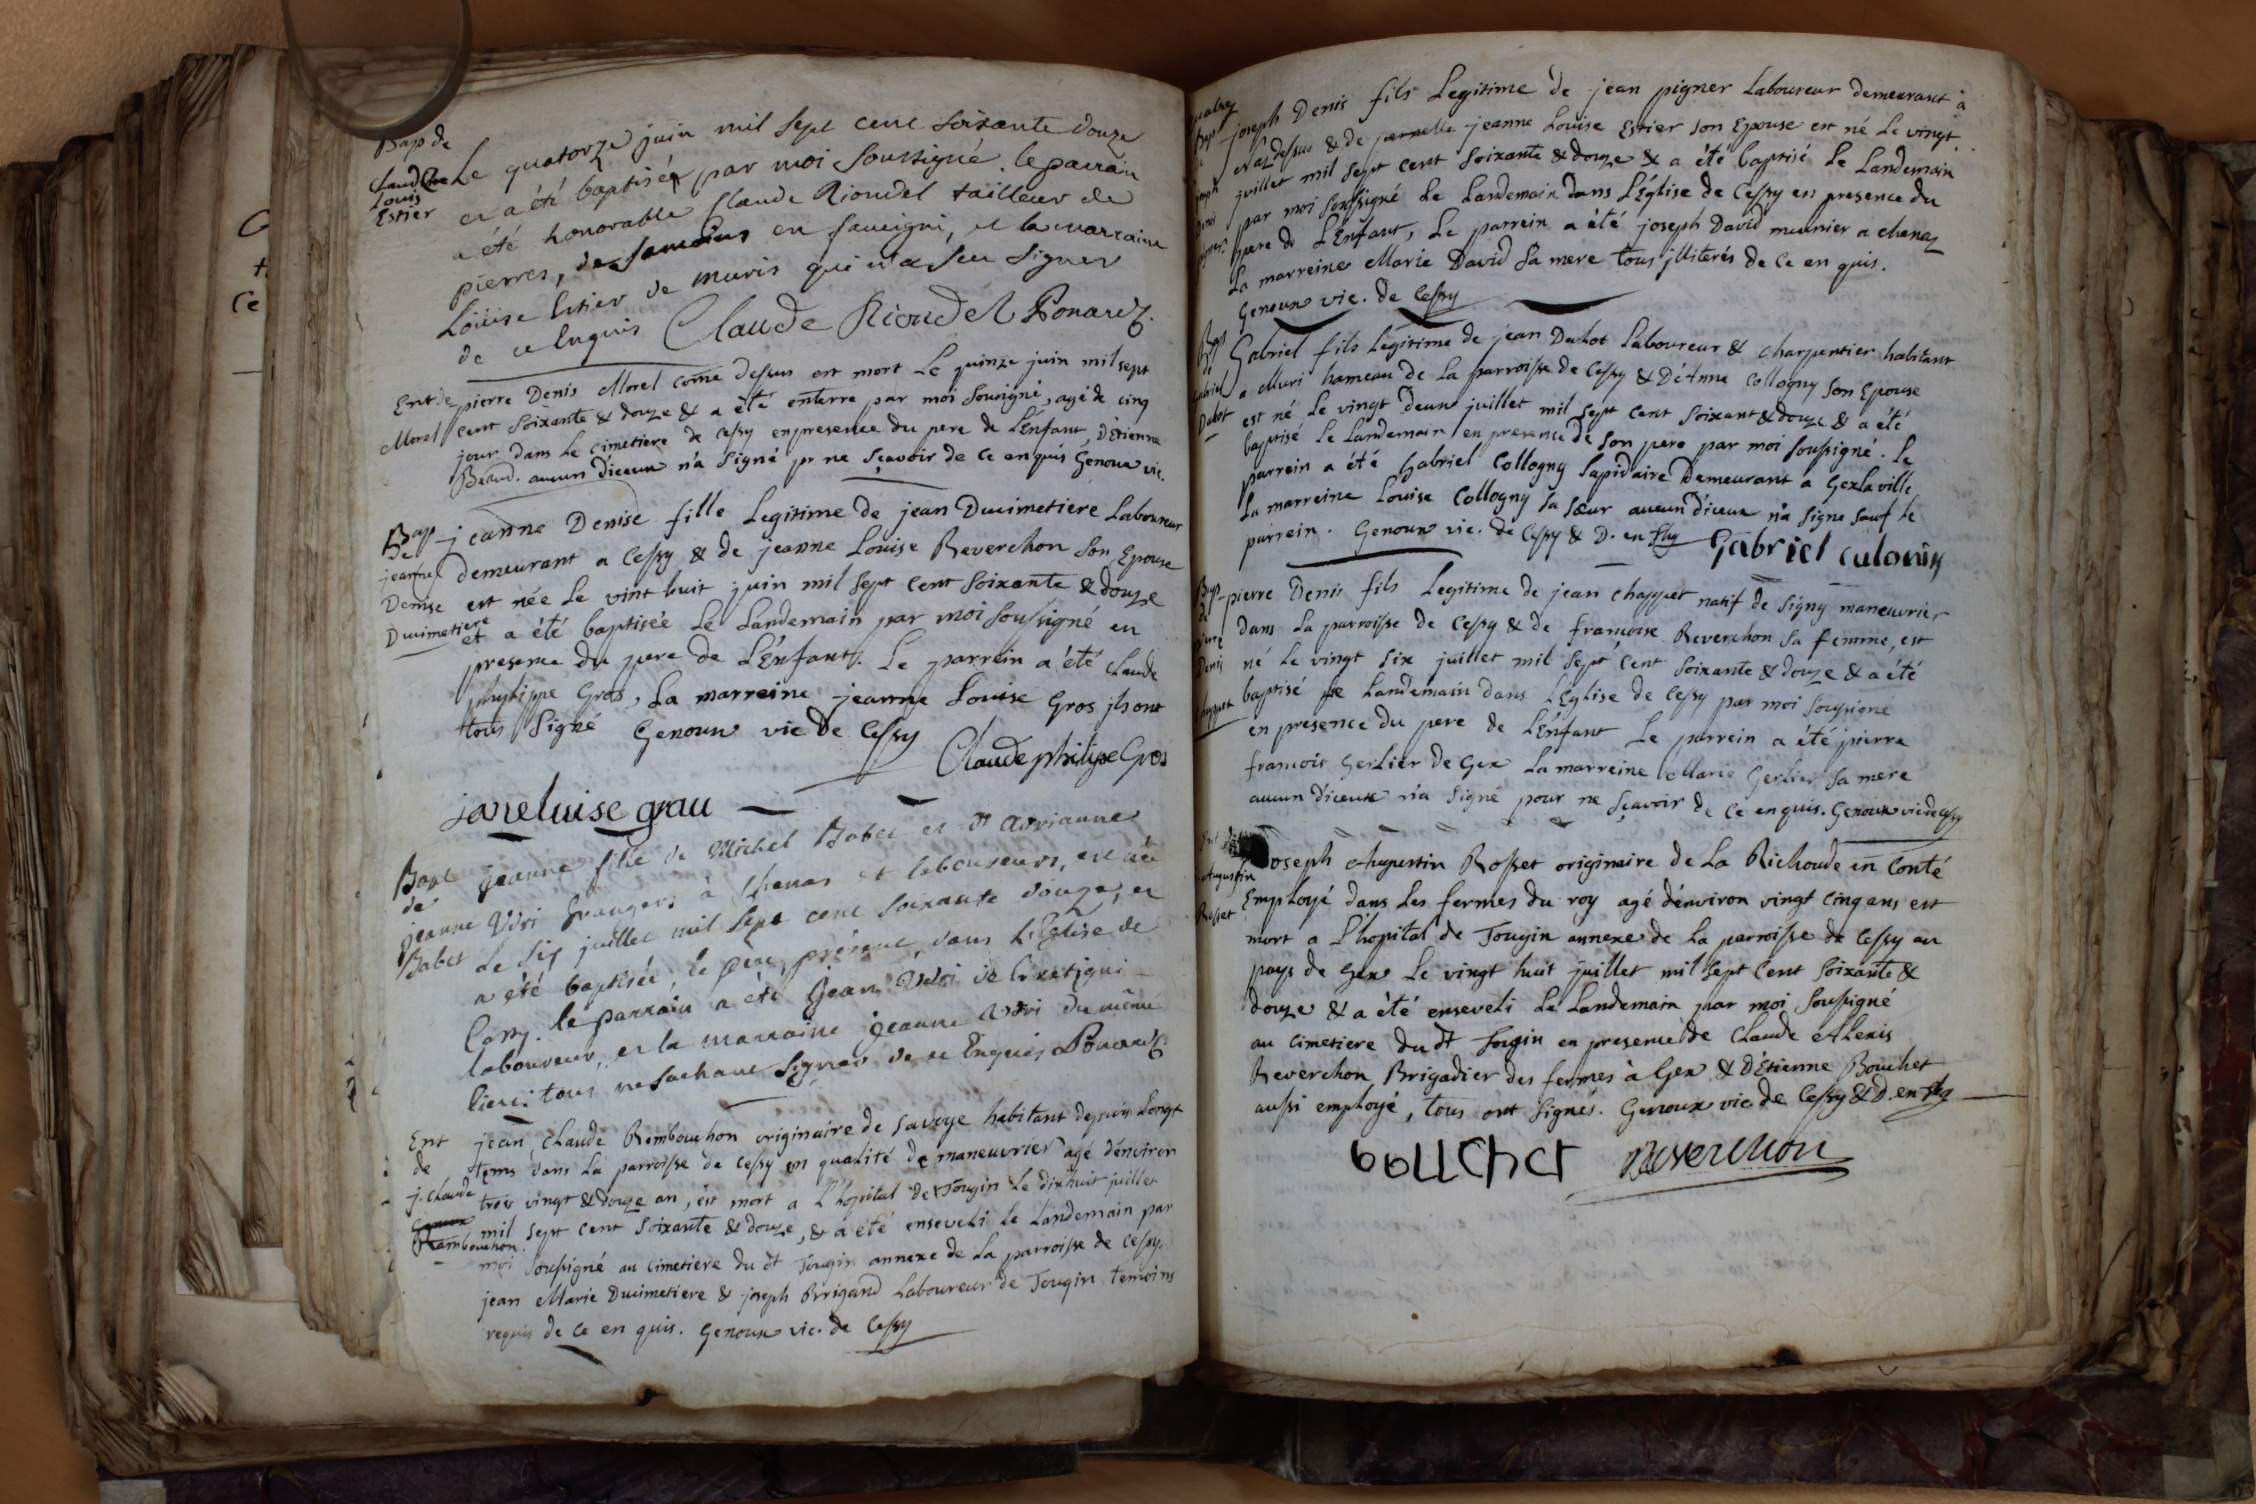 Bap de
Claudine
Louis
Estier
Le quatorze juin mil sept cent soixante douze
et a été baptisée par moi soussigné. le parrain
a été honorable Claude Rioudel tailleur de
pierres, de en sauvigni, et la marraine
Loüise Estier de muris qui n'a seu signer
de ce Enquis Claude Rioudel Ponard
Ent de
Morel
pierre Denis Morel come dessus est mort Le quinze juin mil sept
cent soixante & douze & a été enterré par moi sousigné, agé de cinq
jour dans Le cimetiere de Cessy en presence du pere de L'Enfant, D'Etienne
Beaud. aucun d'iceux n'a signé pr ne sçavoir de ce enquis Genoux vic.
Bap
de
jeanne
Denise
Ducimetiere
jeanne Denise fille Legitime de jean Ducimetiere Laboureur
demeurant a Cessy & de jeanne Louise Reverchon son Epouse
est née Le vint huit juin mil sept cent soixante & douze
et a été baptisée Le Landemain par moi soussigné en
presence du pere de L'Enfant. Le parrein a été Claude
phylippe Gros, La marreine jeanne Louise Gros jls ont
tous signé Genoux vic de Cessy
Claude philipe Gros
jane luise grau
Bapt
de
Jeanne
Babet
jeanne fille de Michel Babet et dt Adrianne
Vdri Grangers à Chenas et laboureurs, est née
Le six juillet mil sept cent soixante douze, et
a été baptisée, le père présent, dans L'Eglise de
Cessy. le parrain a été Jean Vdri de
laboureur, et la marraine Jeanne Vdri du même
lieu: tous ne sachant signer de ce Enquis Ponard
Ent
de
j. claude
Rambouchon.
jean Claude Rembouchon originaire de Savoye habitant depuis Longt
tems dans La parroisse de Cessy en qualité de maneuvrier agé d'environ
trois vingt & douze an, est mort a L'hopital de Tougin Le dixhuit juillet
mil sept cent soixante & douze, & a été enseveli le Landemain par
moi soussigné au cimetiere du dt Tougin annexe de La parroisse de Cessy.
jean Marie Ducimetiere & joseph Brigand Laboureur de Tougin temoins
requis de ce en quis. Genoux vic. de Cessy
Bap
joseph
Denis
joseph Denis fils Legitime de jean pigner Laboureur demeurant à
& de jeanne Louise Estier son Epouse est né Le vingt
juillet mil sept cent soixante & douze & a été baptisé Le Landemain
par moi soussigné Le Landemain dans L'Église de Cessy en presence du
pere de L'Enfant, Le parrein a été joseph David meunier a chenaz
La marreine Marie David sa mere tous jlliterés de ce en quis.
Genoux vic. de Cessy
Bap
de
Gabriel
Duhot
Gabriel fils Légitime de jean Duhot Laboureur & charpentier habitant
a Muri hameau de La parroisse de Cessy & D'Anne Collogny son Epouse
est né Le vingt deux juillet mil sept cent soixant & douze & a été
baptisé Le Landemain en presence de son pere par moi soussigné. Le
parrein a été Gabriel Collogny Lapidaire Demeurant a Gex la ville
La marreine Louise Collogny sa sœur aucun d'iceux n'a signe sauf le
parrein. Genoux vic. de Cessy & D. en Thg Gabriel culonin
Bap
de
pierre
Denis
Chappuet
pierre Denis fils Legitime de jean Chappuet natif de Signy maneuvrier
dans La parroisse de Cessy & de francoise Reverchon sa femme, est
né Le vingt six juillet mil sept cent soixante & douze & a été
baptisé Le Landemain dans L'Eglise de Cessy par moi sousigné
en presence du pere de L'Enfant Le parrein a été pierre
francois Gerlier de Gex La marreine Marie Gerlier sa mere
aucun d'iceux n'a signé pour ne sçavoir de ce enquis. Genoux vic de Cessy
Ent
Augustin
Rosset
joseph Augustin Rosset originaire de La Richoude en Conté
Employé dans Les fermes du roy agé d'environ vingt cinq ans est
mort a L'hopital de Tougin annexe de La parroisse de Cessy au
pays de Gex Le vingt huit juillet mil sept cent soixante &
douze & a été enseveli Le Landemain par moi soussigné
au cimetiere du dt Tougin en presence de Claude Alexis
Reverchon Brigadier des fermes à Gex & D'Etienne Bouchet
aussi employé, tous ont signés. Genoux vic de Cessy & D. en Thg
boUChet Reverchon